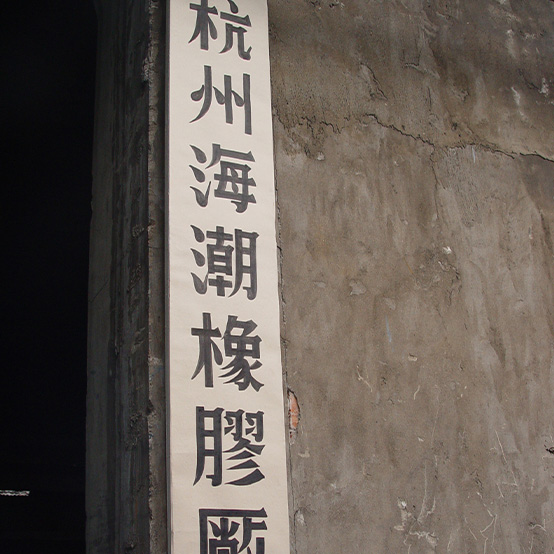 杭州海潮橡膠厰